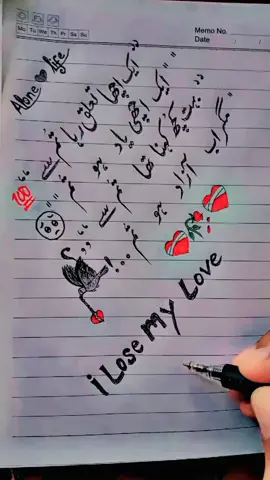 Memo No.
Date / /
Mo Tu We Th Fr Sa Su
Alone life
"ایک اچھا تعلق رہا تم سے"
"ایک اچھی یاد ہو تم"
"بہت کچھ کہنا تھا تم سے"
"مگر اب آزاد ہو تم...!"
100
i Lose my Love